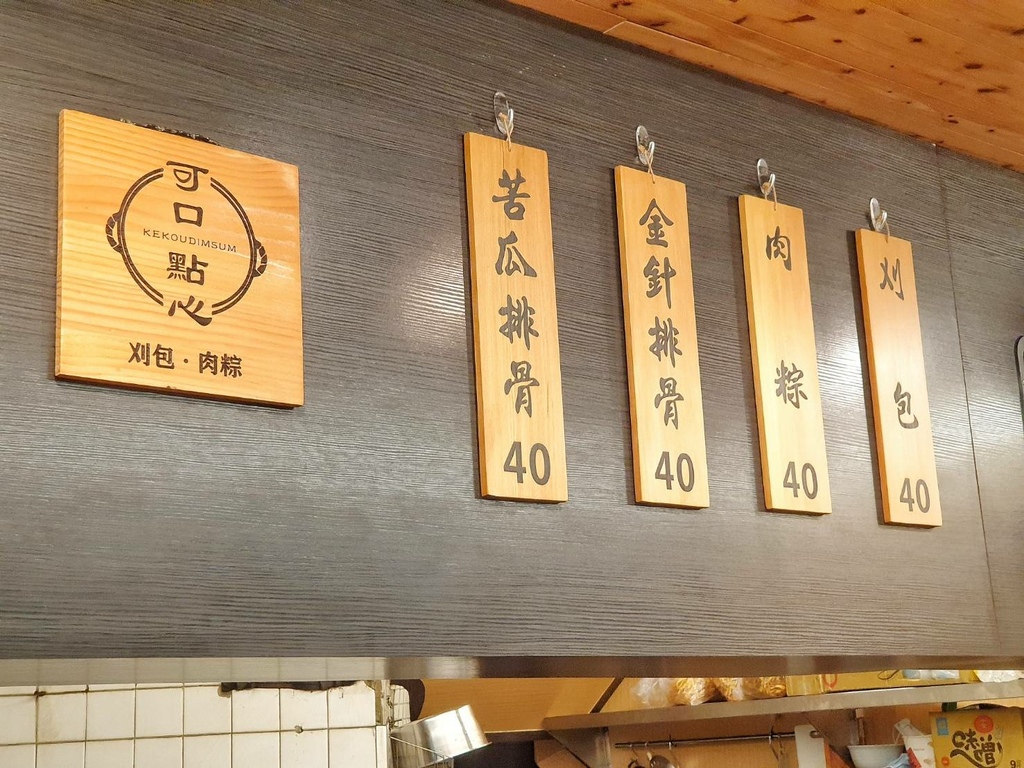 可口
KEKOUDIMSUM
點心
刈包·肉粽
苦瓜排骨 40
金針排骨 40
肉粽 40
刈包 40
味噌